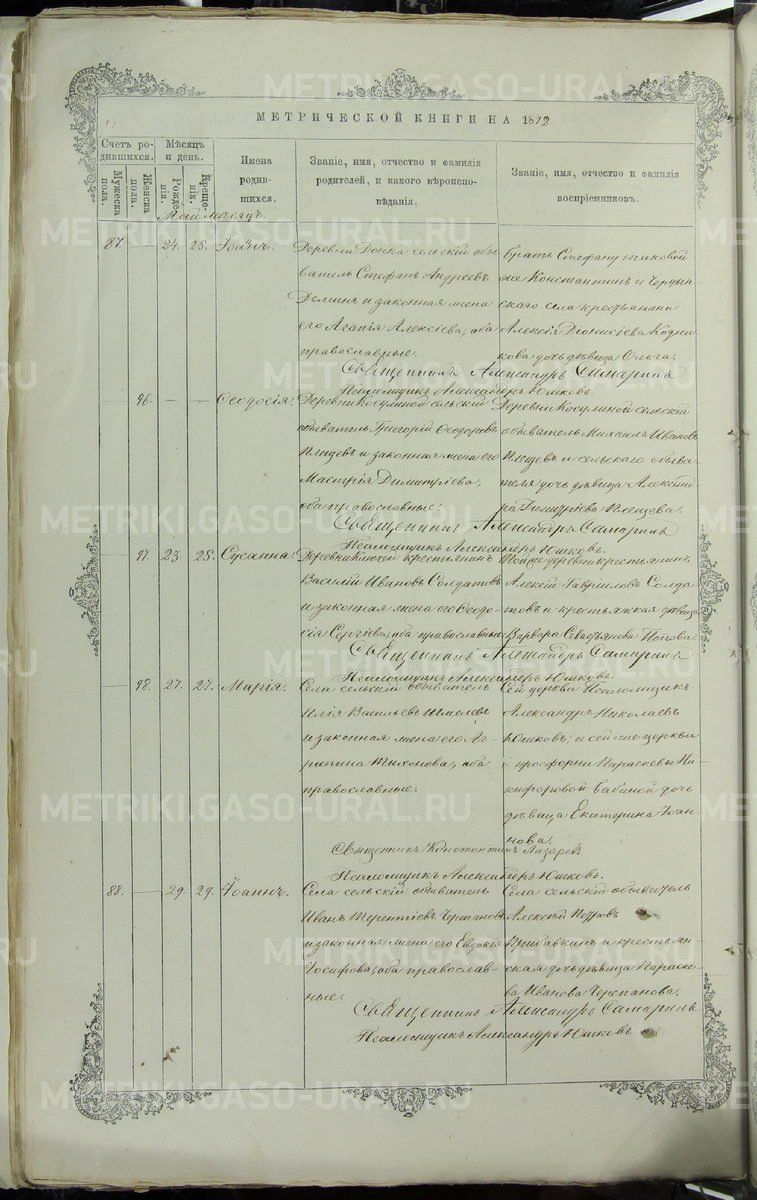 МЕТРИЧЕСКОЙ КНИГИ НА 1872
Счетъ родившихся.
Мужеска пола.
Женска пола.
Мѣсяцъ и день.
Рожденія.
Крещенія.
Имена родившихся.
Званіе, имя, отчество и фамилія
родителей, и какого вѣроиспо-
вѣданія.
Званіе, имя, отчество и фамилія
воспріемниковъ.
Май мѣсяцъ.
87. — 24. 25.
Деревни сельскій обы-
ватель Стефанъ Андреевъ
Деминъ и законная жена
его Агапія Алексіева, оба
православные.
братъ Стефану таковой
же Константинъ и
скаго села крестьянина
Алексія Діонисіева
кова дочь дѣвица Ольга.
Священникъ Александръ Самаринъ
Псаломщикъ Александръ Юшковъ.
— 96. — — Ѳеодосія.
Деревни Косулиной сельскій
обыватель Григорій Ѳеодоровъ
Плещевъ и законная жена его
Димитріева,
оба православные.
Деревни Косулиной сельскій
обыватель Михаилъ Ивановъ
Плещевъ и сельскаго обыва-
теля дочь дѣвица Алексан-
ра Димитріева Плещева.
Священникъ Александръ Самаринъ
Псаломщикъ Александръ Юшковъ.
— 97. 23. 25. Сусанна.
Деревни крестьянинъ
Василій Ивановъ Солдатовъ
и законная жена его Ѳеодо-
сія Сергіева, оба православные
Той же деревни крестьянинъ
Алексій Гавриловъ Солда-
товъ и крестьянская дѣвица
Варвара Севастьянова Попова.
Священникъ Александръ Самаринъ
Псаломщикъ Александръ Юшковъ.
— 98. 27. 27. Марія.
Села сельскій обыватель
Илія Васильевъ Шмелевъ
и законная жена его Аг-
рипина Тихонова, оба
православные.
Сей церкви Псаломщикъ
Александръ Николаевъ
Юшковъ; и сей же церкви
просфорни Параскевы Ни-
кифоровой Бабиной дочь
дѣвица Екатерина Іоан-
нова.
Священникъ Константинъ Лазаревъ
Псаломщикъ Александръ Юшковъ.
88. — 29. 29. Іоаннъ.
Села сельскій обыватель
Иванъ Терентіевъ Черепановъ
и законная жена его Евдокія
Іосифова, оба православ-
ные.
Села сельскій обыватель
Алексѣй Петровъ
и крестьян-
ская дочь дѣвица Параске-
ва Иванова Черепанова.
Священникъ Александръ Самаринъ
Псаломщикъ Александръ Юшковъ
METRIKI.GASO-URAL.RU